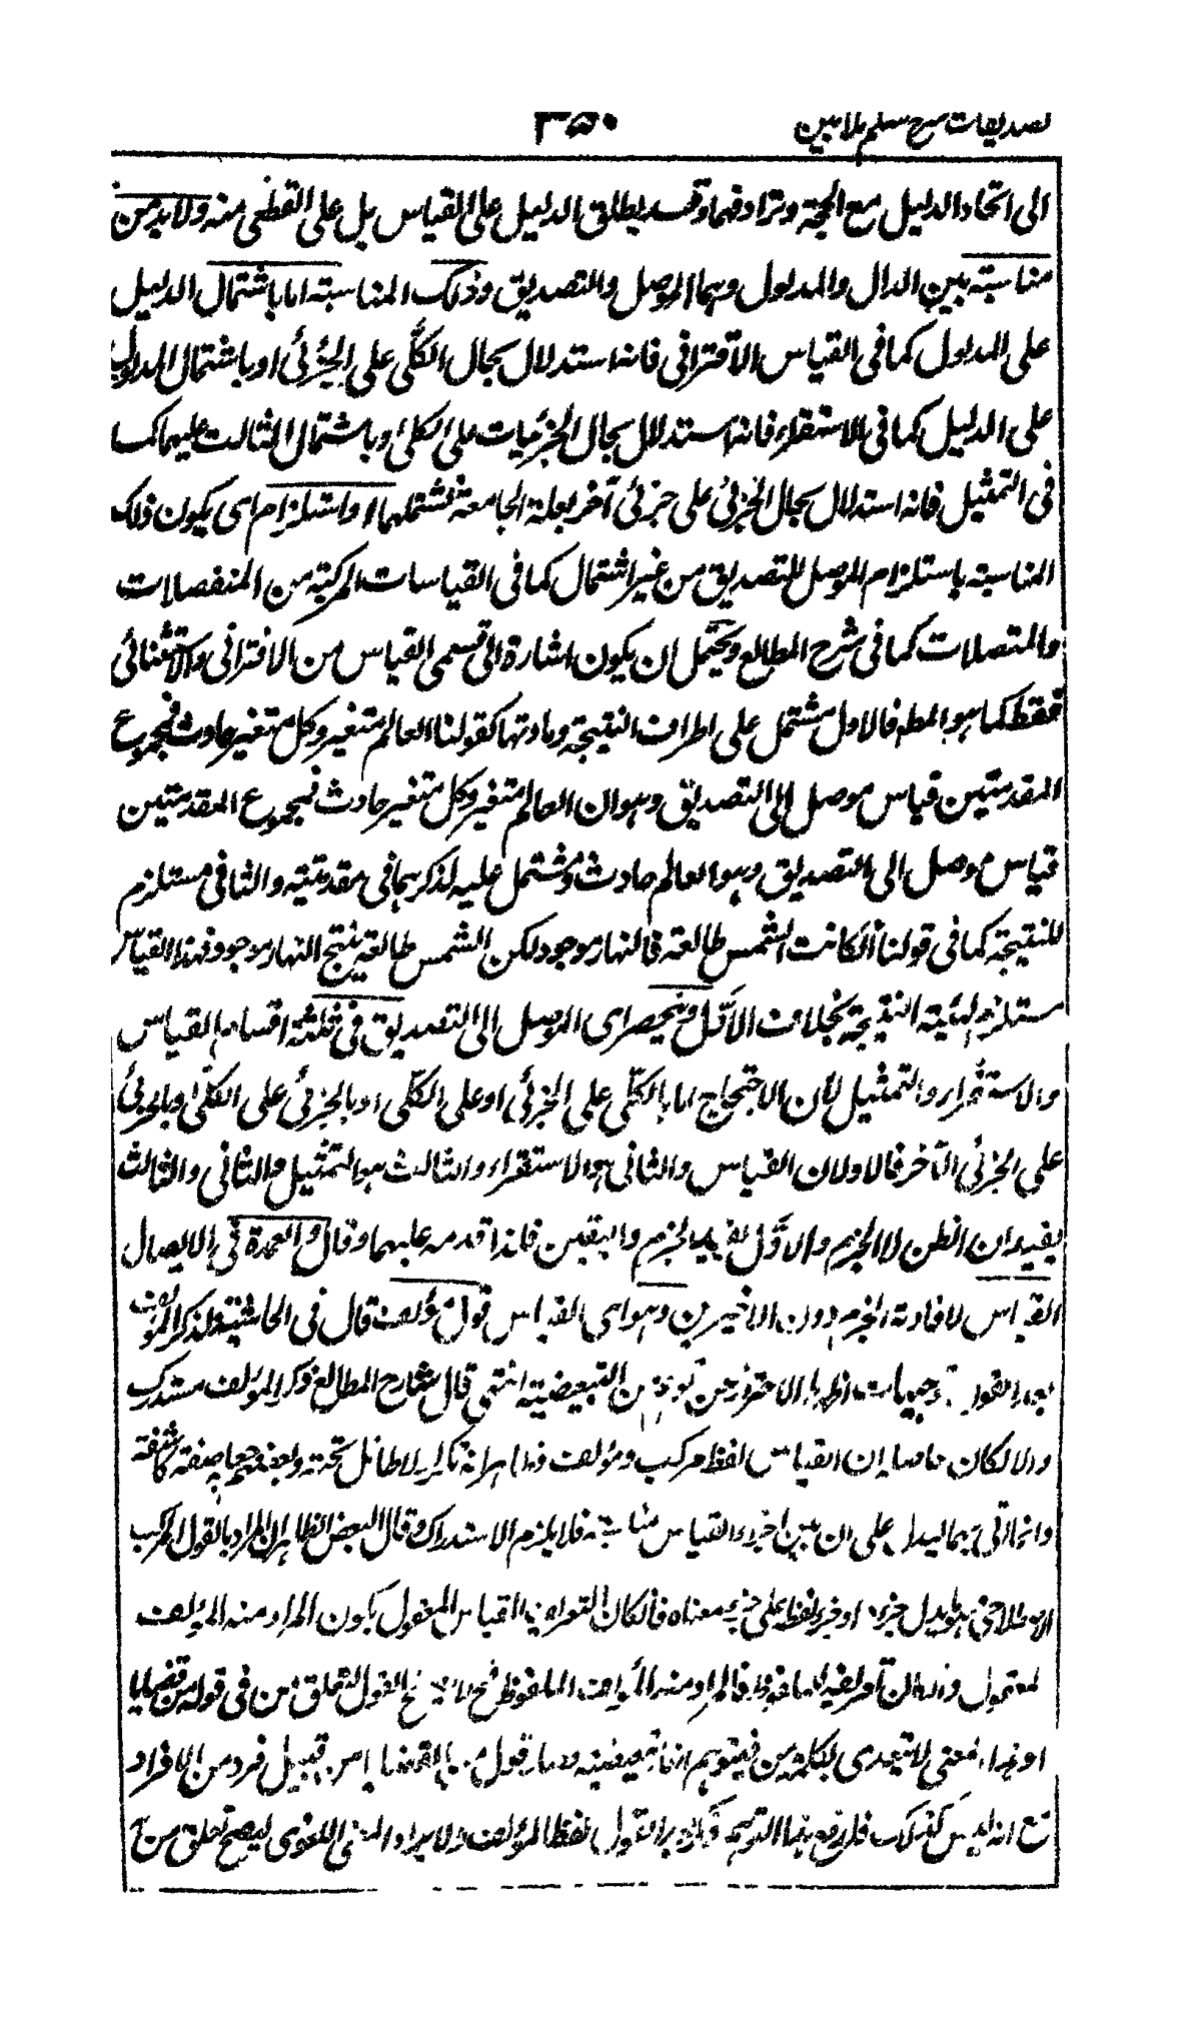 تصديقات شرح سلم ملا مبين ٣٥٠
الى اتحاد الدليل مع الحجة وترادفهما وقد يطلق الدليل على القياس بل على القطعى منه ولا بد من
مناسبة بين الدال والمدلول وهما الموصل والتصديق وذلك المناسبة اما باشتمال الدليل
على المدلول كما فى القياس الاقترانى فانه استدلال بحال الكلى على الجزئى او باشتمال المدلول
على الدليل كما فى الاستقراء فانه استدلال بحال الجزئيات على الكلى او باشتمال الثالث عليهما كما
فى التمثيل فانه استدلال بحال الجزئى على جزئى آخر بعلة الجامعة تشتملهما او استلزام اى يكون ذلك
المناسبة باستلزام الموصل للتصديق من غير اشتمال كما فى القياسات المركبة من المنفصلات
والمتصلات كما فى شرح المطالع ويحتمل ان يكون اشارة الى قسمى القياس من الاقترانى والاستثنائى
فقط كما هو المط فالاول مشتمل على اطراف النتيجة ومادتها كقولنا العالم متغير وكل متغير حادث فمجموع
المقدمتين قياس موصل الى التصديق وهو ان العالم متغير وكل متغير حادث فمجموع المقدمتين
قياس موصل الى التصديق وهو العالم حادث ومشتمل عليه لذكرهما فى مقدمتيه والثانى مستلزم
للنتيجة كما فى قولنا ان كانت الشمس طالعة فالنهار موجود لكن الشمس طالعة ينتج النهار موجود فهذا القياس
مستلزم لهيئة النتيجة بخلاف الاول وينحصر اى الموصل الى التصديق فى ثلثة اقسام القياس
والاستقراء والتمثيل لان الاحتجاج اما بالكلى على الجزئى او على الكلى او بالجزئى على الكلى او بالجزئى
على الجزئى الآخر فالاولان القياس والثانى هو الاستقراء والثالث هو التمثيل والثانى والثالث
يفيدان الظن لا الجزم والاول يفيد الجزم واليقين فلذا قدمه عليهما وقال والعمدة فى الايصال
القياس لافادته الجزم دون الاخيرين وهو اى القياس قول مؤلف قال فى الحاشية لذكر المؤلف
بعد القول توجيهات اظهرها الاحتراز عن توهم من التبعيضية انتهى قال شارح المطالع ذكر المؤلف مستدرك
والا لكان حاصله ان القياس لفظ مركب ومؤلف تكرار لا طائل تحته وبعضهم جعله صفة كاشفة
وانما اتى بها ليدل على ان بين اجزاء القياس مناسبة فلا يلزم الاستدراك وقال البعض الظاهر ان المراد بالقول المركب
الاصطلاحى ما يدل جزء لفظه على جزء معناه فان كان التعريف للقياس المعقول يكون المراد منه المؤلف
المعقول وان كان تعريف الملفوظ فالمراد منه المؤلف الملفوظ فح القول لتعلق من فى قوله من قضايا
اذ بهذا المعنى لا يتعدى بكلمة من فيتوهم انها تبعيضية وصار قول من القضايا من قبيل فرد من الافراد
مع انه ليس كذلك فلدفع هذا التوهم ذكر بعد القول لفظ المؤلف ولا يراد المعنى اللغوى ليصح تعلق من